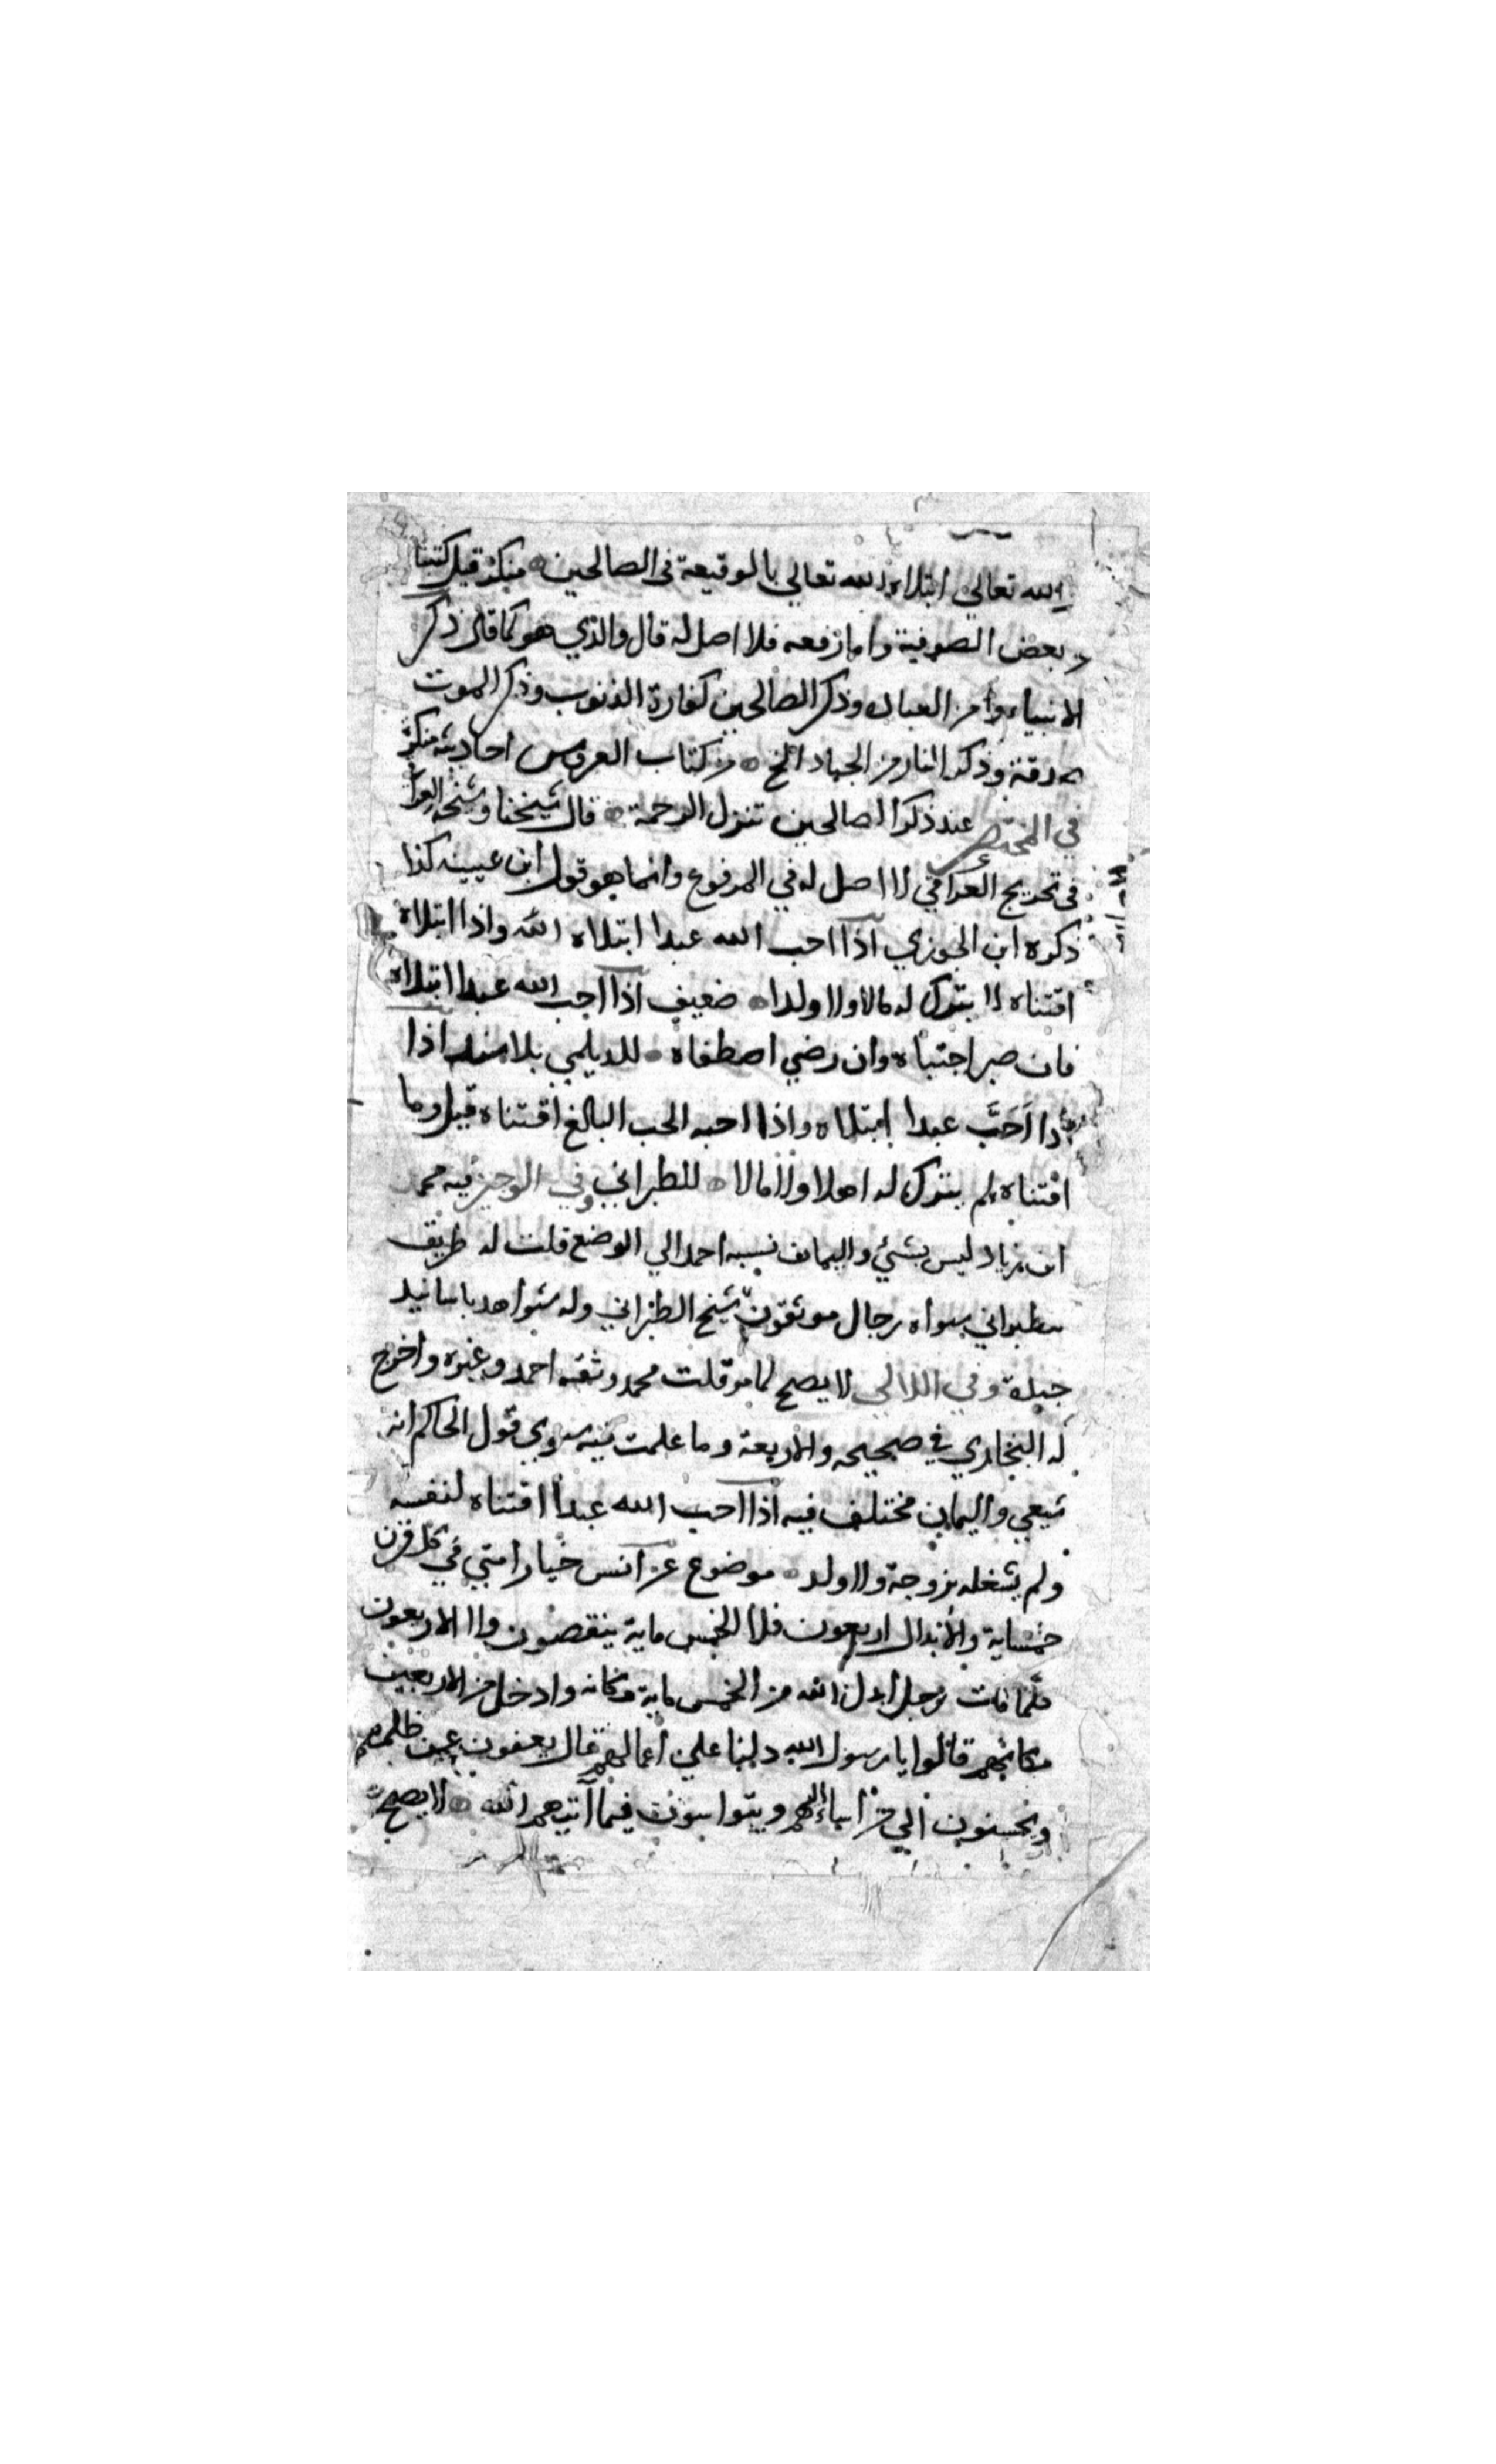 الله تعالى ابتلاه الله تعالي بالوقيعة في الصالحين منكر قيل كتبنا
بعض الصوفية واما رفعه فلا اصل له قال والذي هو كما قال ذكر
الانبياء من العبادة وذكر الصالحين كفارة الذنوب وذكر الموت
صدقة وذكر النار من الجهاد الخ من كتاب العروس احاديثه منكرة
في المختصر عند ذكر الصالحين تنزل الرحمة قال شيخنا وشيخه العرا
في تخريج العراقي لا اصل له في المرفوع وانما هو قول ابن عيينه كذا
ذكره ابن الجوزي اذا احب الله عبدا ابتلاه الله واذا ابتلاه
اقتناه لا يترك له مالا ولا ولدا ضعيف اذا احب الله عبدا ابتلاه
فان صبر اجتباه وان رضي اصطفاه للديلمي بلا سند اذا
احب عبدا ابتلاه واذا احبه الحب البالغ اقتناه قيل وما
اقتناه لم يترك له اهلا ولا مالا للطبراني وفي الوجيز فيه محمد
ابن زياد ليس بشئ واليمان نسبه احمد الي الوضع قلت له طريق
للطبراني سواه رجال موثقون شيخ الطبراني وله شواهد باسانيد
جيدة وفي اللالي لا يصح لما مر قلت محمد وثقه احمد وغيره واخرج
له البخاري في صحيحه والاربعة وما علمت فيه سوى قول الحاكم انه
شيعي واليمان مختلف فيه اذا احب الله عبدا اقتناه لنفسه
ولم يشغله بزوجة ولا ولد موضوع عن انس خيار امتي في كل قرن
خمساية والابدال اربعون فلا الخمس ماية ينقصون ولا الاربعون
كلما مات رجل ابدل الله من الخمس ماية مكانه وادخل من الاربعين
مكانهم قالوا يا رسول الله دلنا علي اعمالهم قال يعفون عمن ظلمهم
ويحسنون الي من اساء اليهم ويتواسون فيما آتيهم الله لا يصح